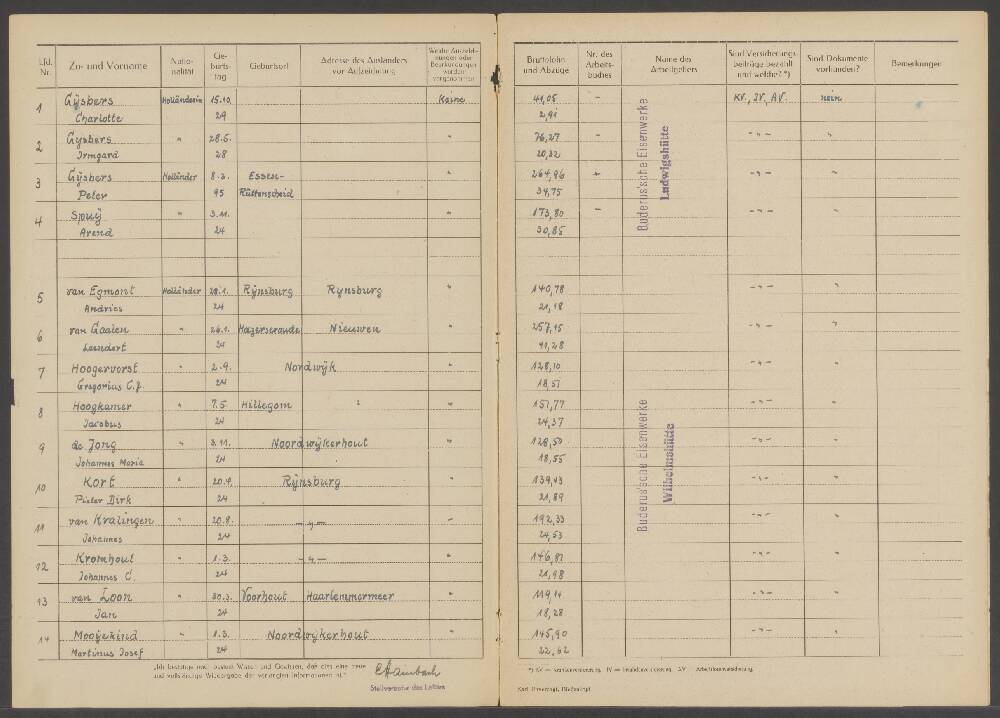 Lfd. Nr. Zu- und Vorname Natio-nalität Ge-burts-tag Geburtsort Adresse des Ausländers vor Aufzeichnung Welche Aufzeich-nungen oder Beurkundungen wurden vorgenommen Bruttolohn und Abzüge Nr. des Arbeits-buches Name des Arbeitgebers Sind Versicherungs-beiträge bezahlt und welche? *) Sind Dokumente vorhanden? Bemerkungen
1 Gijsbers Holländerin 15.10. Keine 41,05 - KV., IV., AV. nein
Charlotte 29 2,91
2 Gijsbers " 28.5. " 76,27 - - " - "
Irmgard 28 20,32
3 Gijsbers Holländer 8.3. Essen- " 264,96 + - " - "
Peter 95 Rüttenscheid 34,75
4 Spuij " 3.11. " 173,80 - - " - "
Arend 24 30,85
Buderus'sche Eisenwerke
Ludwigshütte
5 van Egmont Holländer 28.1. Rijnsburg Rijnsburg " 140,78 - " - "
Andries 24 21,18
6 van Gaalen " 26.1. Nieuwen " 257,15 - " - "
Leendert 24 41,28
7 Hoogervorst " 2.9. Nordwijk " 128,10 - " - "
Gregorius C.J. 24 18,51
8 Hoogkamer " 7.5. Hillegom " 151,77 - " - "
Jacobus 24 24,37
9 de Jong " 3.11. Noordwijkerhout " 128,50 - " - "
Johannes Maria 24 18,55
10 Kort " 20.9. Rijnsburg " 139,43 - " - "
Pieter Dirk 24 21,89
11 van Kralingen " 20.8. - " - " 192,33 - " - "
Johannes 24 24,53
12 Kromhout " 1.3. - " - " 146,81 - " - "
Johannes C. 24 21,98
13 van Loon " 30.3. Voorhout Haarlemmermeer " 119,14 - " - "
Jan 24 18,28
14 Mooijekind " 1.3. Noordwijkerhout " 145,90 - " - "
Martinus Josef 24 22,62
Buderus'sche Eisenwerke
Wilhelmshütte
„Ich bestätige nach bestem Wissen und Gewissen, daß dies eine genaue
und vollständige Wiedergabe der verlangten Informationen ist."
Stellvertreter des Leiters
*) KV = Krankenversicherung, IV = Invalidenversicherung, AV = Arbeitslosenversicherung.